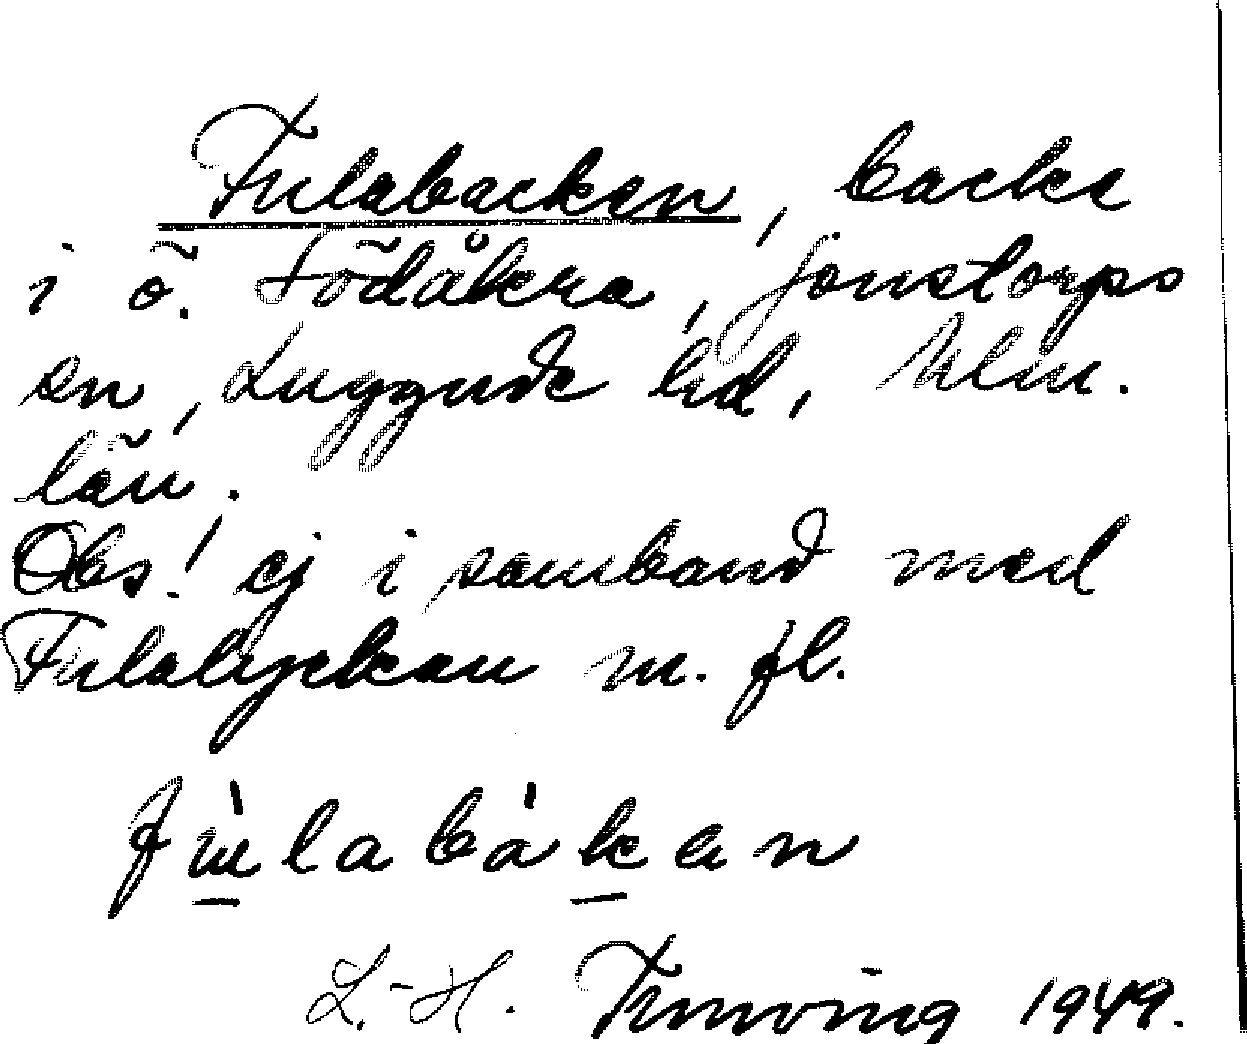 Fulabacken, backe
i ö. Södåkra, Jonstorps
sn, Luggude hd, Mlm.
län.
Obs! ej i samband med
Fulalyckan m. fl.
L.-H.
1949.